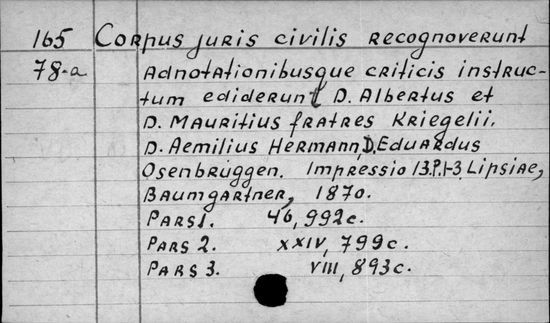 165 Corpus juris civilis recognoverunt
78-a Adnotationibusque criticis instruc-
tum ediderunt D. Albertus et
D. Mauritius fratres Kriegelii,
D. Aemilius Hermann, D. Eduardus
Osenbrüggen. Impressio 13. P. 1-3. Lipsiae,
Baumgartner, 1870.
Pars 1. 46, 992c.
Pars 2. XXIV, 799c.
Pars 3. VIII, 893c.